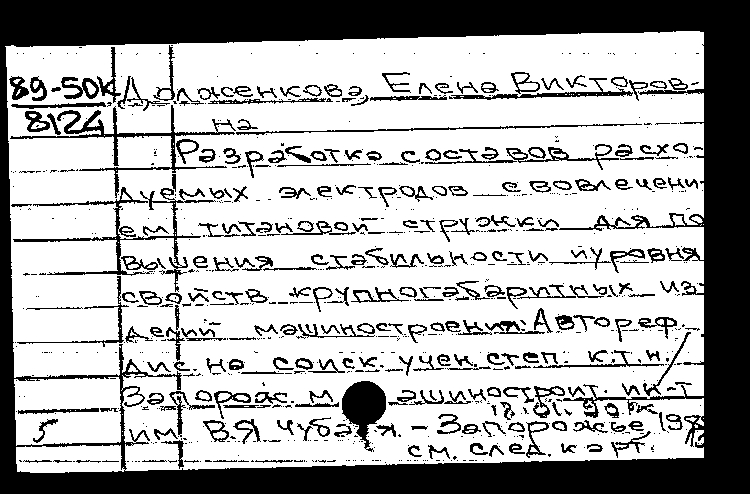 89-50К Доласенкова, Елена Викторов-
8124 на
Разработка составов расхо-
дуемых электродов с вовлечени-
ем титановой стружки для по
вышения стабильности и уровня
свойств крупногабаритных из-
делий машиностроения: Автореф.
дис. на соиск. учен. степ. к.т.н.
Запорож. м ашиностроит. ин-т
18.01.90
5 им В.Я Чубаря. - Запорожье, 198
см. след. карт.